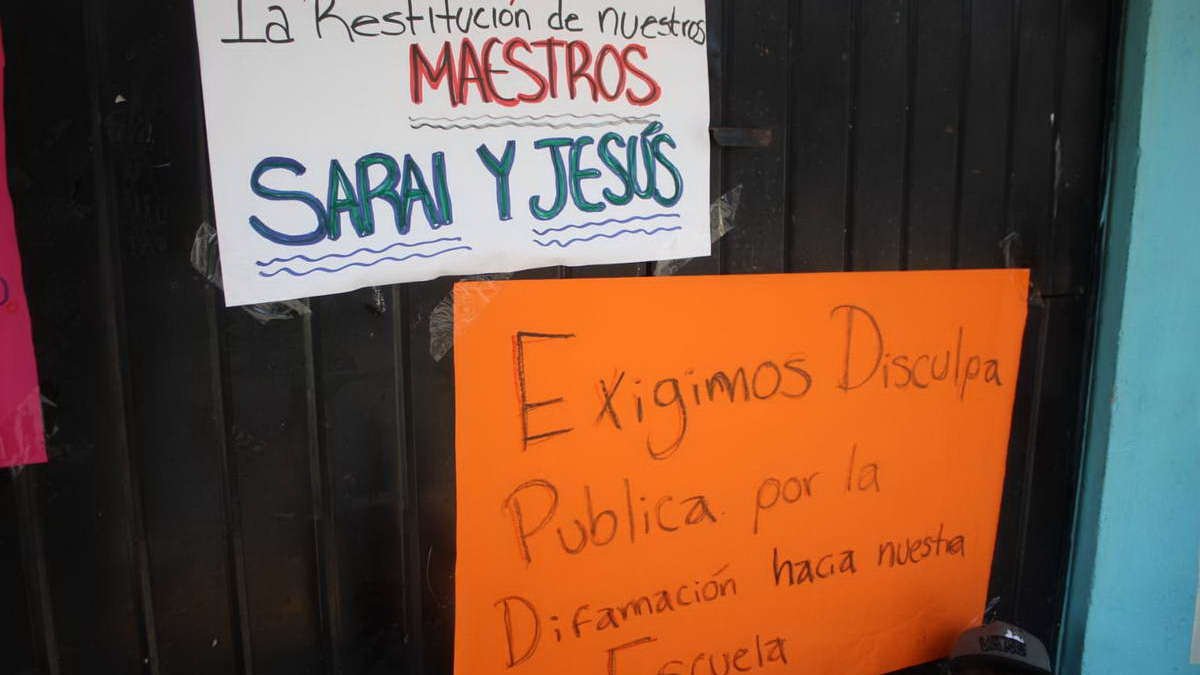 La Restitución de nuestros
MAESTROS
SARAI Y JESÚS
Exigimos Disculpa
Publica por la
Difamación hacia nuestra
Escuela